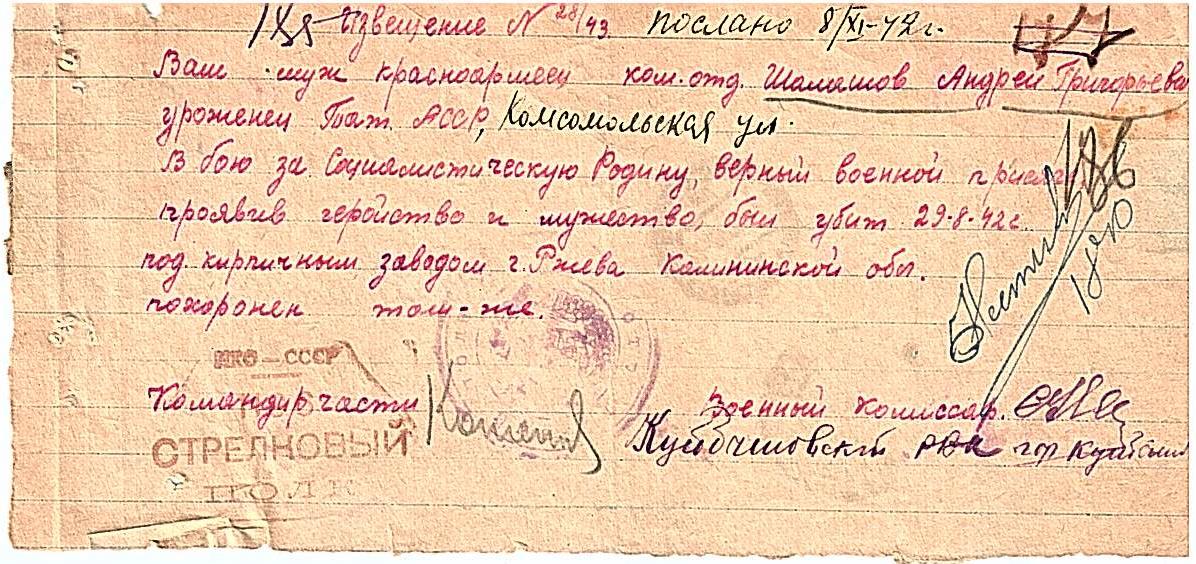 Извещение N 28/43 послано 8/XI-42 г.
Ваш муж красноармеец ком. отд. Шалашов Андрей Григорьевич
уроженец Тат. АССР, Комсомольская ул.
В бою за Социалистическую Родину, верный военной присяге
проявив геройство и мужество, был убит 29-8-42 г
под кирпичным заводом г. Ржева Калининской обл.
похоронен там-же.
НКО—СССР
Командир части Военный комиссар.
СТРЕЛКОВЫЙ
ПОЛК
Куйбышевский РВК гор